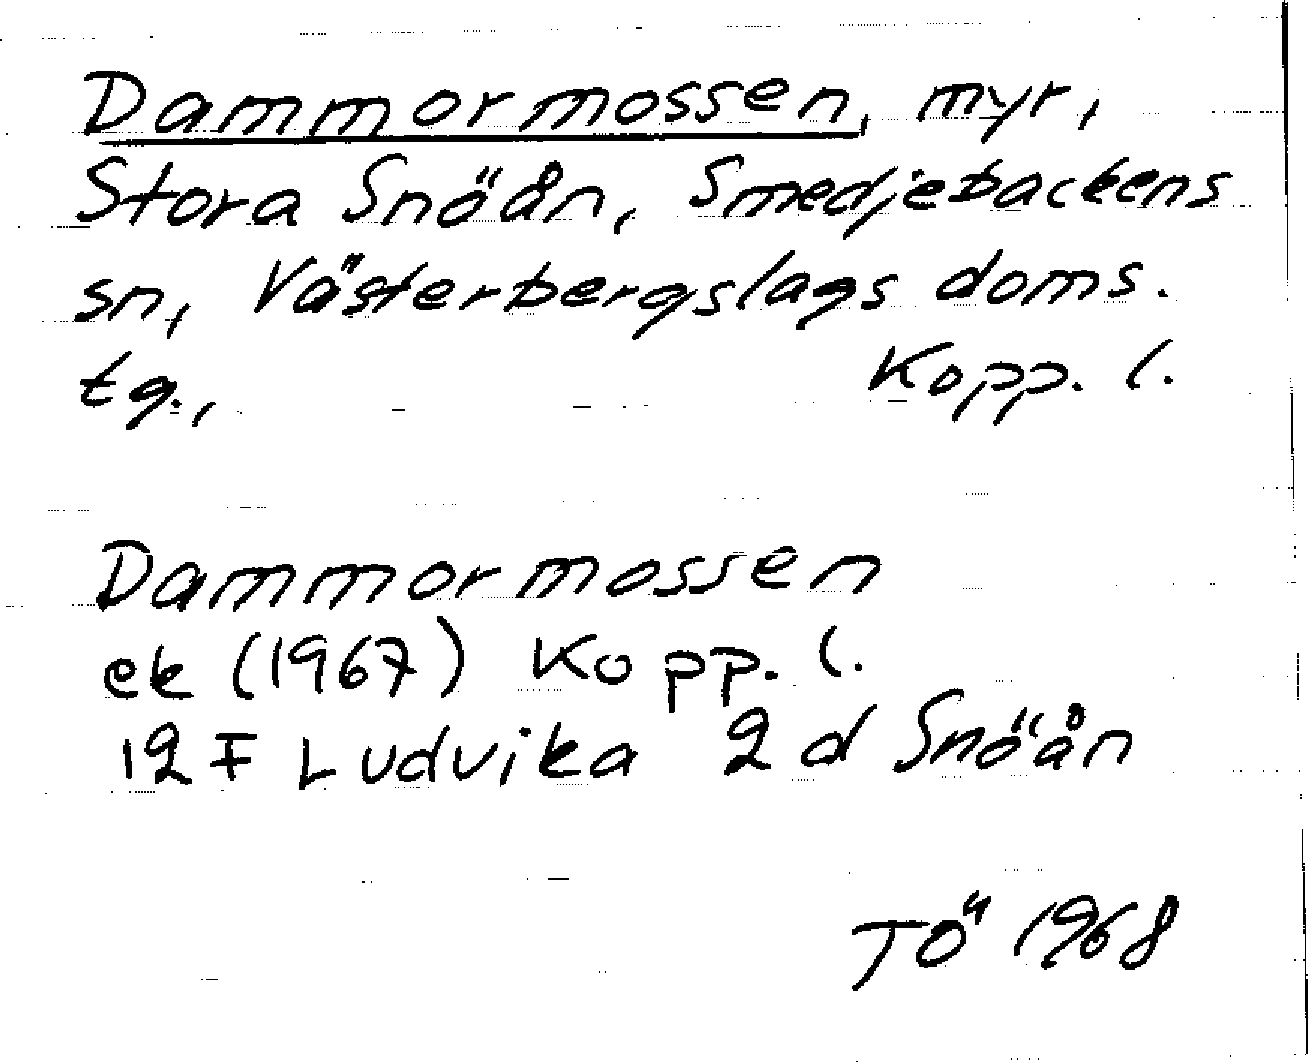 Dammormossen, myr,
Stora Snöån, Smedjebackens
sn, Västerbergslags doms.
tg., Kopp. l.
Dammormossen
ek (1967) Kopp. l.
12 F Ludvika 2 d Snöån
TÖ 1968